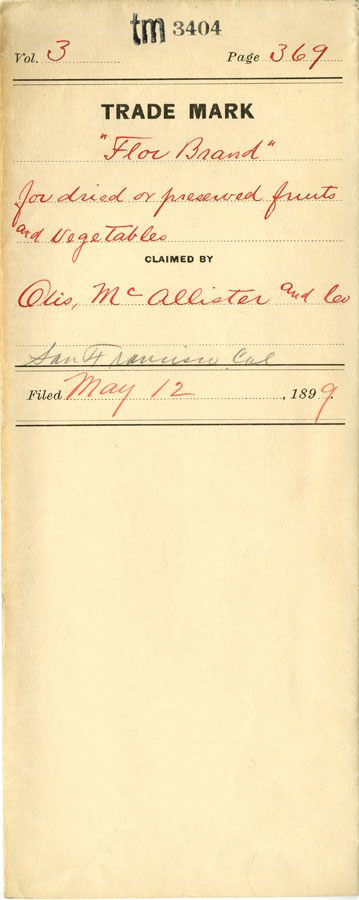 tm 3404
Vol. 3 Page 369
TRADE MARK
"Flor Brand"
for dried or preserved fruits
and Vegetables
CLAIMED BY
Otis, Mc Allister and Co
San Francisco Cal
Filed May 12, 1899.